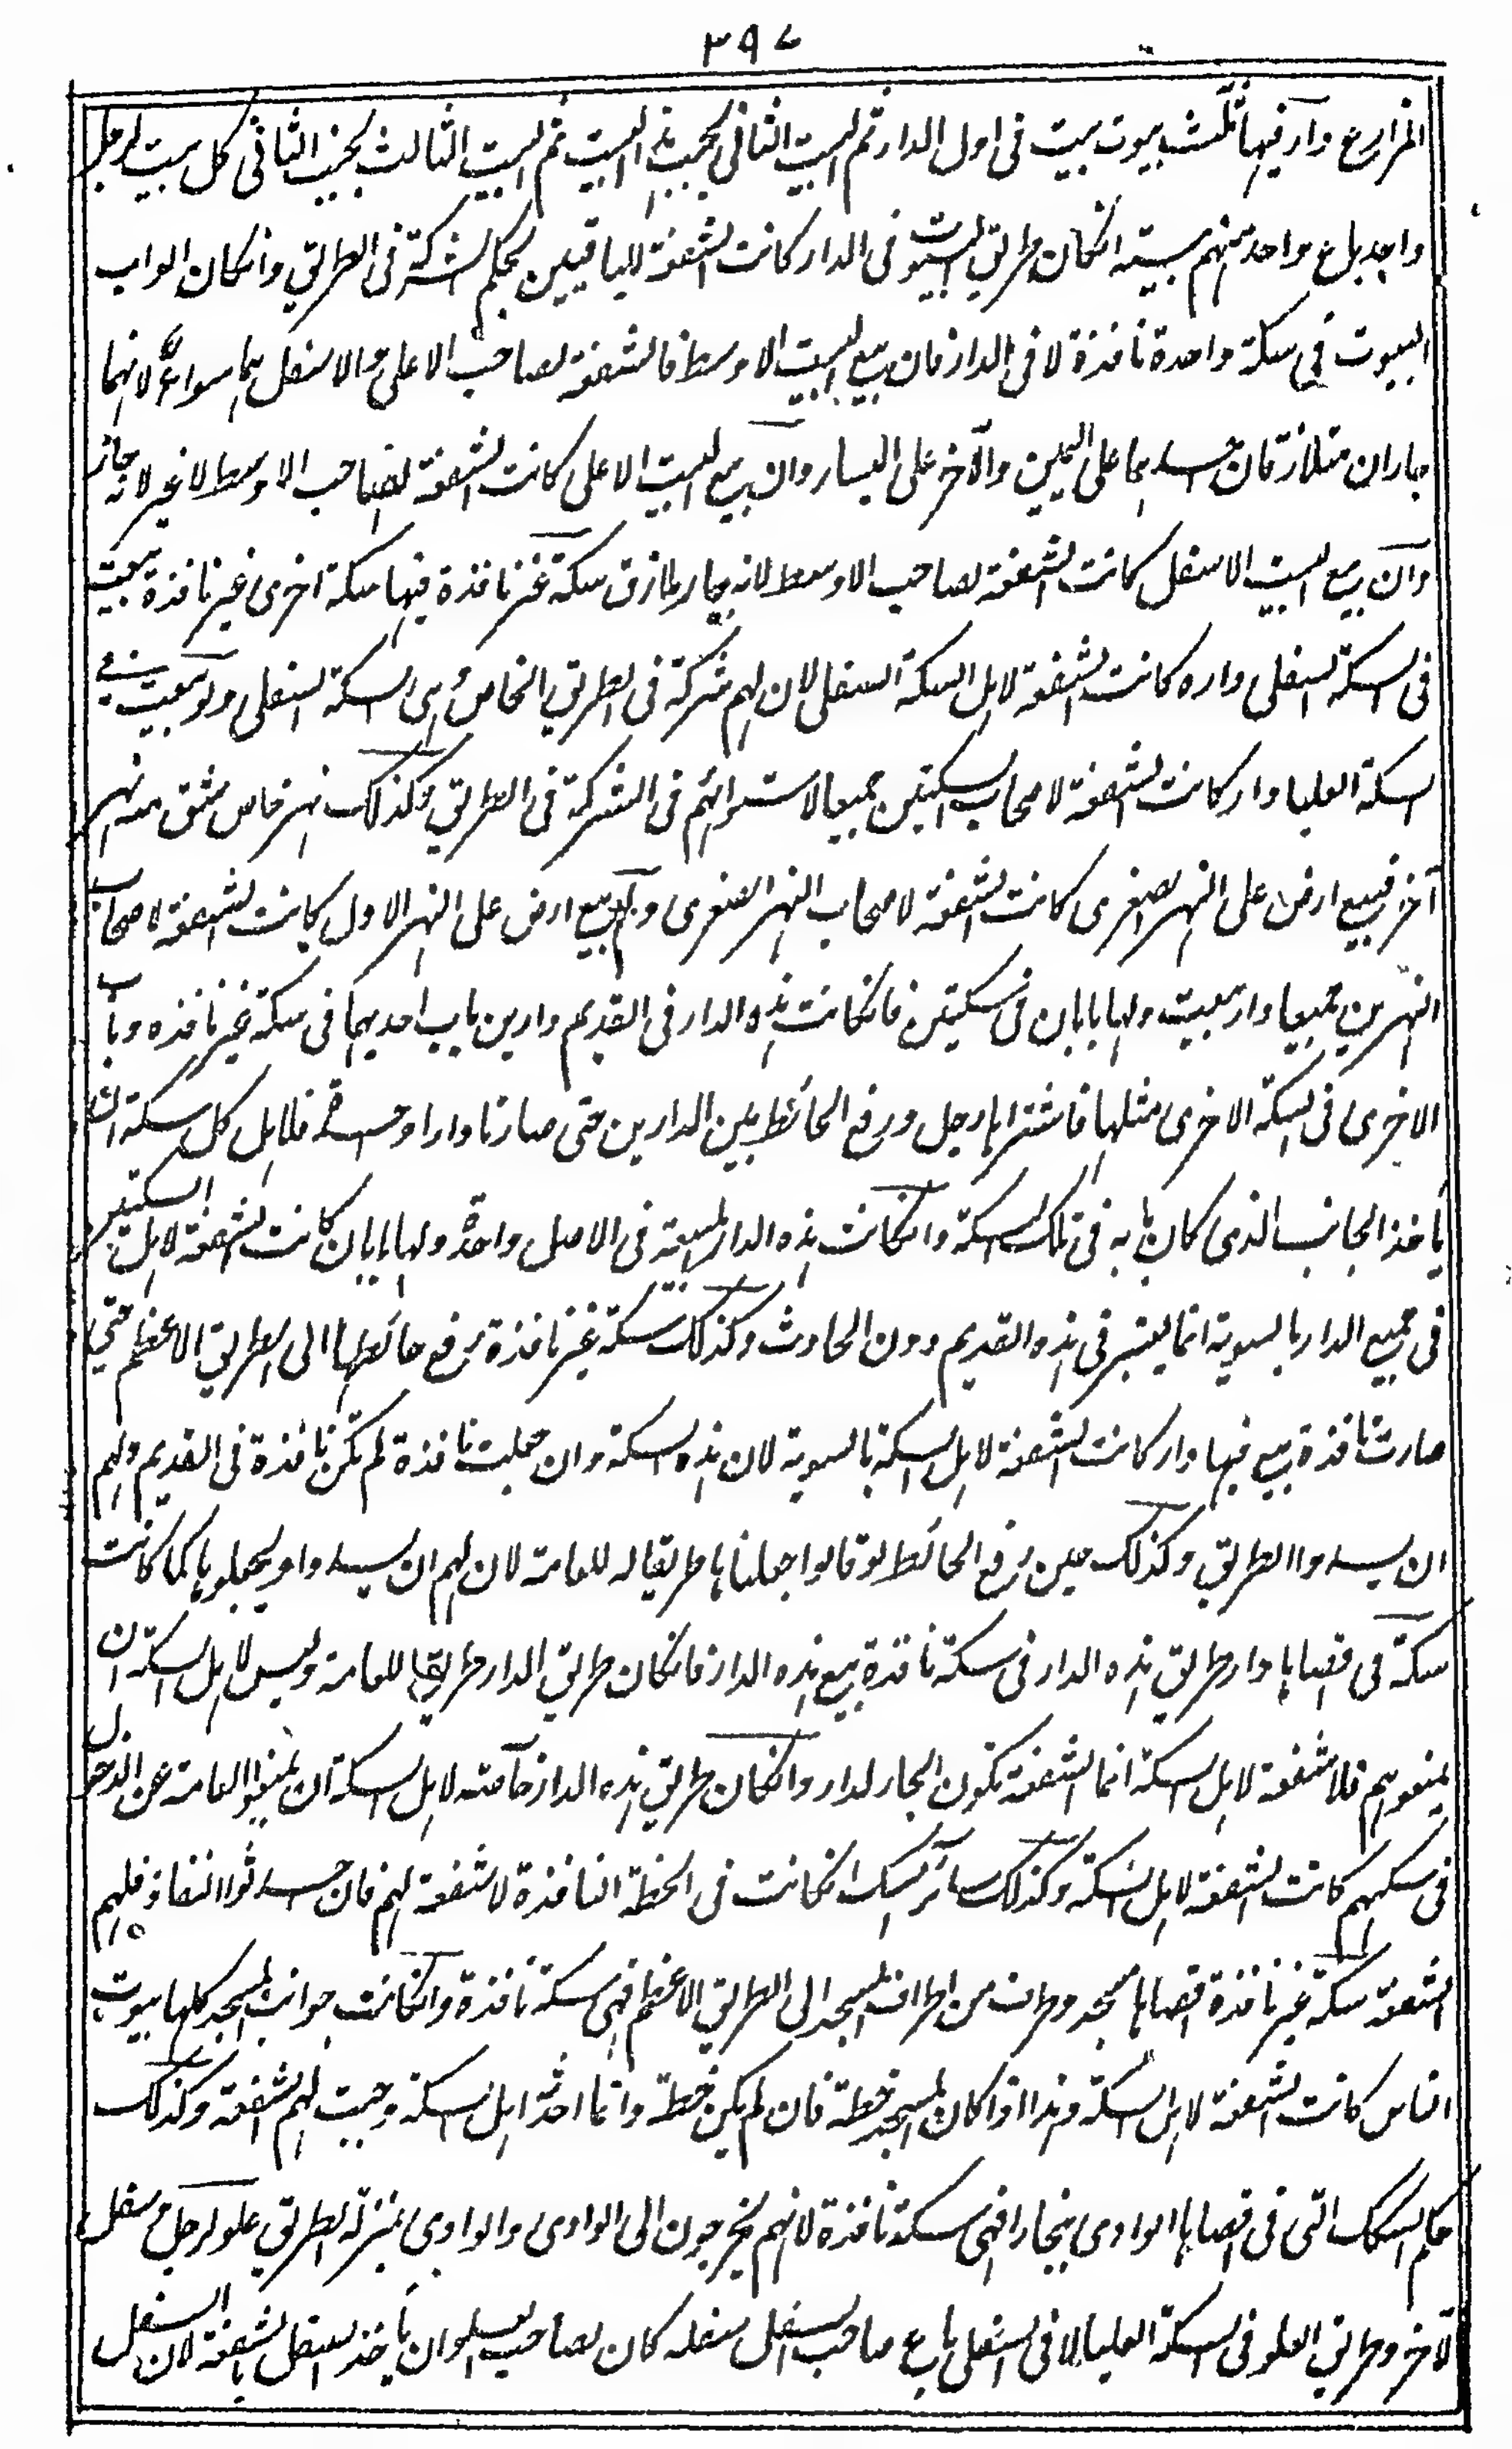 ٣٩٧
المزارع دار فيها ثلث بيوت بيت فى اول الدار ثم البيت الثانى بجنب هذا البيت ثم البيت الثالث بجنب الثانى كل بيت لرجل
واحد باع واحد منهم بيته انكان طريق البيوت فى الدار كانت الشفعة للباقيين بحكم الشركة فى الطريق وانكان ابواب
البيوت فى سكة واحدة نافذة لا فى الدار فان بيع البيت الاوسط فالشفعة لصاحب الاعلى والاسفل هما سواء لانهما
جاران متلازقان احدهما على اليمين والآخر على اليسار وان بيع البيت الاعلى كانت الشفعة لصاحب الاوسط لا غير لانه جار
وان بيع البيت الاسفل كانت الشفعة لصاحب الاوسط لانه جار ملازق سكة غير نافذة فيها سكة اخرى غير نافذة بيعت
فى السكة السفلى داره كانت الشفعة لاهل السكة السفلى لان لهم شركة فى الطريق الخاص وهى السكة السفلى ولو بيعت فى
السكة العليا دار كانت الشفعة لاصحاب السكتين جميعا لاستوائهم فى الشركة فى الطريق وكذلك نهر خاص منشق منه نهر
آخر فبيع ارض على النهر الصغرى كانت الشفعة لاصحاب النهر الصغرى ولو بيع ارض على النهر الاول كانت الشفعة لاصحاب
النهرين جميعا دار بيعت ولها بابان فى سكتين فانكانت هذه الدار فى القديم دارين باب احديهما فى سكة غير نافذه وباب
الاخرى فى السكة الاخرى مثلها فاشتراها رجل ورفع الحائط بين الدارين حتى صارتا دارا واحدة فلاهل كل سكة ان
يأخذ الجانب الذى كان بابه فى تلك السكة وانكانت هذه الدار المبيعة فى الاصل واحدة ولها بابان كانت الشفعة لاهل السكتين
فى جميع الدار بالسوية انما يعتبر فى هذه القديم دون الحادث وكذلك سكة غير نافذة رفع حائطها الى الطريق الاعظم حتى
صارت نافذة بيع فيها دار كانت الشفعة لاهل السكة بالسوية لان هذه السكة وان جعلت نافذة لم تكن نافذة فى القديم ولهم
ان يسدوا الطريق وكذلك حين رفع الحائط لو قالوا جعلناها طريقا له للعامة لان لهم ان يسدوا ويجعلوها كما كانت
سكة فى قصاها دار طريق هذه الدار فى سكة نافذة بيع هذه الدار فانكان طريق الدار طريقا للعامة وليس لاهل السكة ان
يمنعوهم فلا شفعة لاهل السكة انما الشفعة تكون الجار لدار وانكان طريق هذه الدار خاصة لاهل السكة ان يمنعوا العامة عن الدخول
فى سكتهم كانت الشفعة لاهل السكة وكذلك سائر السكك انكانت فى الخطة النافذة لا شفعة لهم فان احدثوا النفاذ فلهم
الشفعة سكة غير نافذة قصاها مسجد وطرف من اطراف المسجد الى الطريق الاعظم فهى سكة نافذة وانكانت جوانب المسجد كلها بيوت
الناس كانت الشفعة لاهل السكة وهذا اذا كان المسجد خطة فان لم يكن خطة وانما احدثه اهل السكة وجبت لهم الشفعة وكذلك
حكم السكك التى فى قصاها الوادى ببخارا فهى سكة نافذة لانهم يخرجون الى الوادى والوادى بمنزلة الطريق علو لرجل وسفل
لآخر وطريق العلو فى السكة العليا لا فى السفلى باع صاحب السفل سفله كان لصاحب العلو ان يأخذ السفل بالشفعة لان السفل